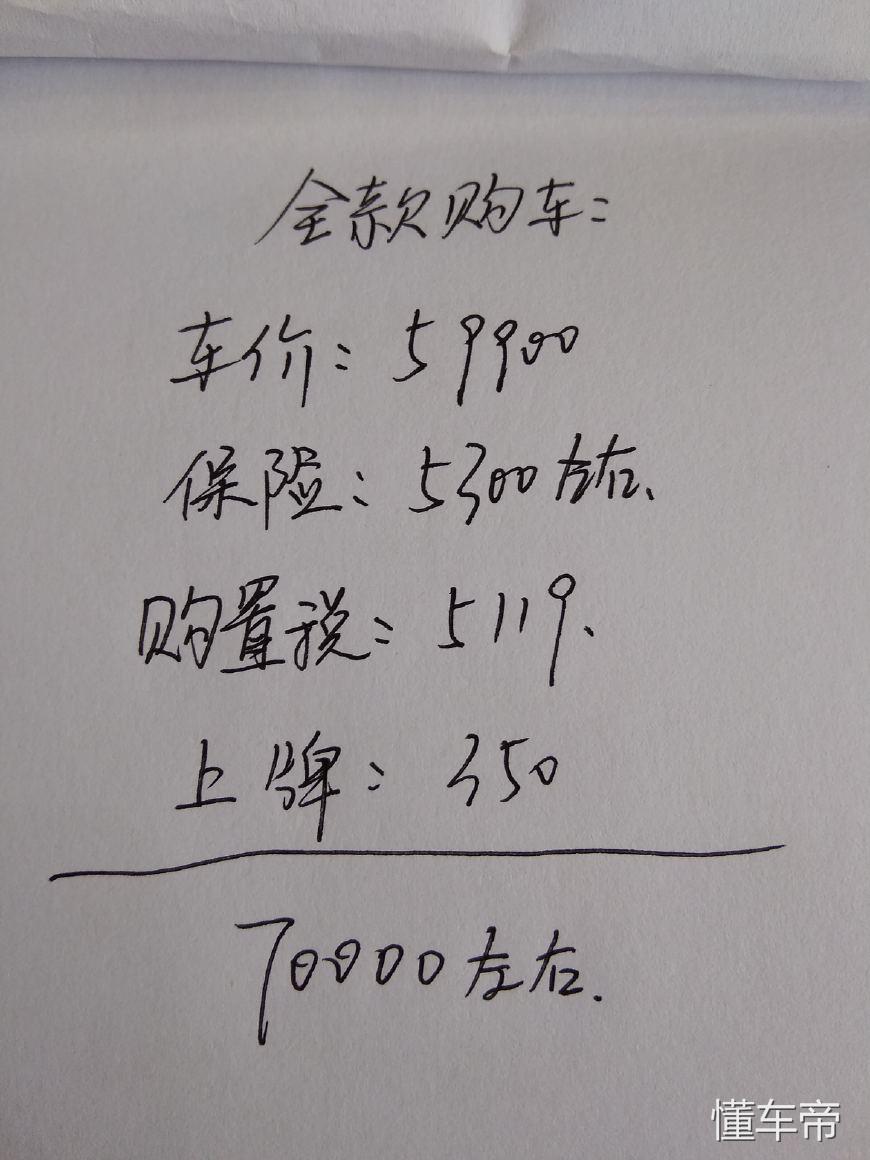 全款购车:
车价: 59900
保险: 5300左右、
购置税: 5119、
上牌: 350
70000左右.
懂车帝